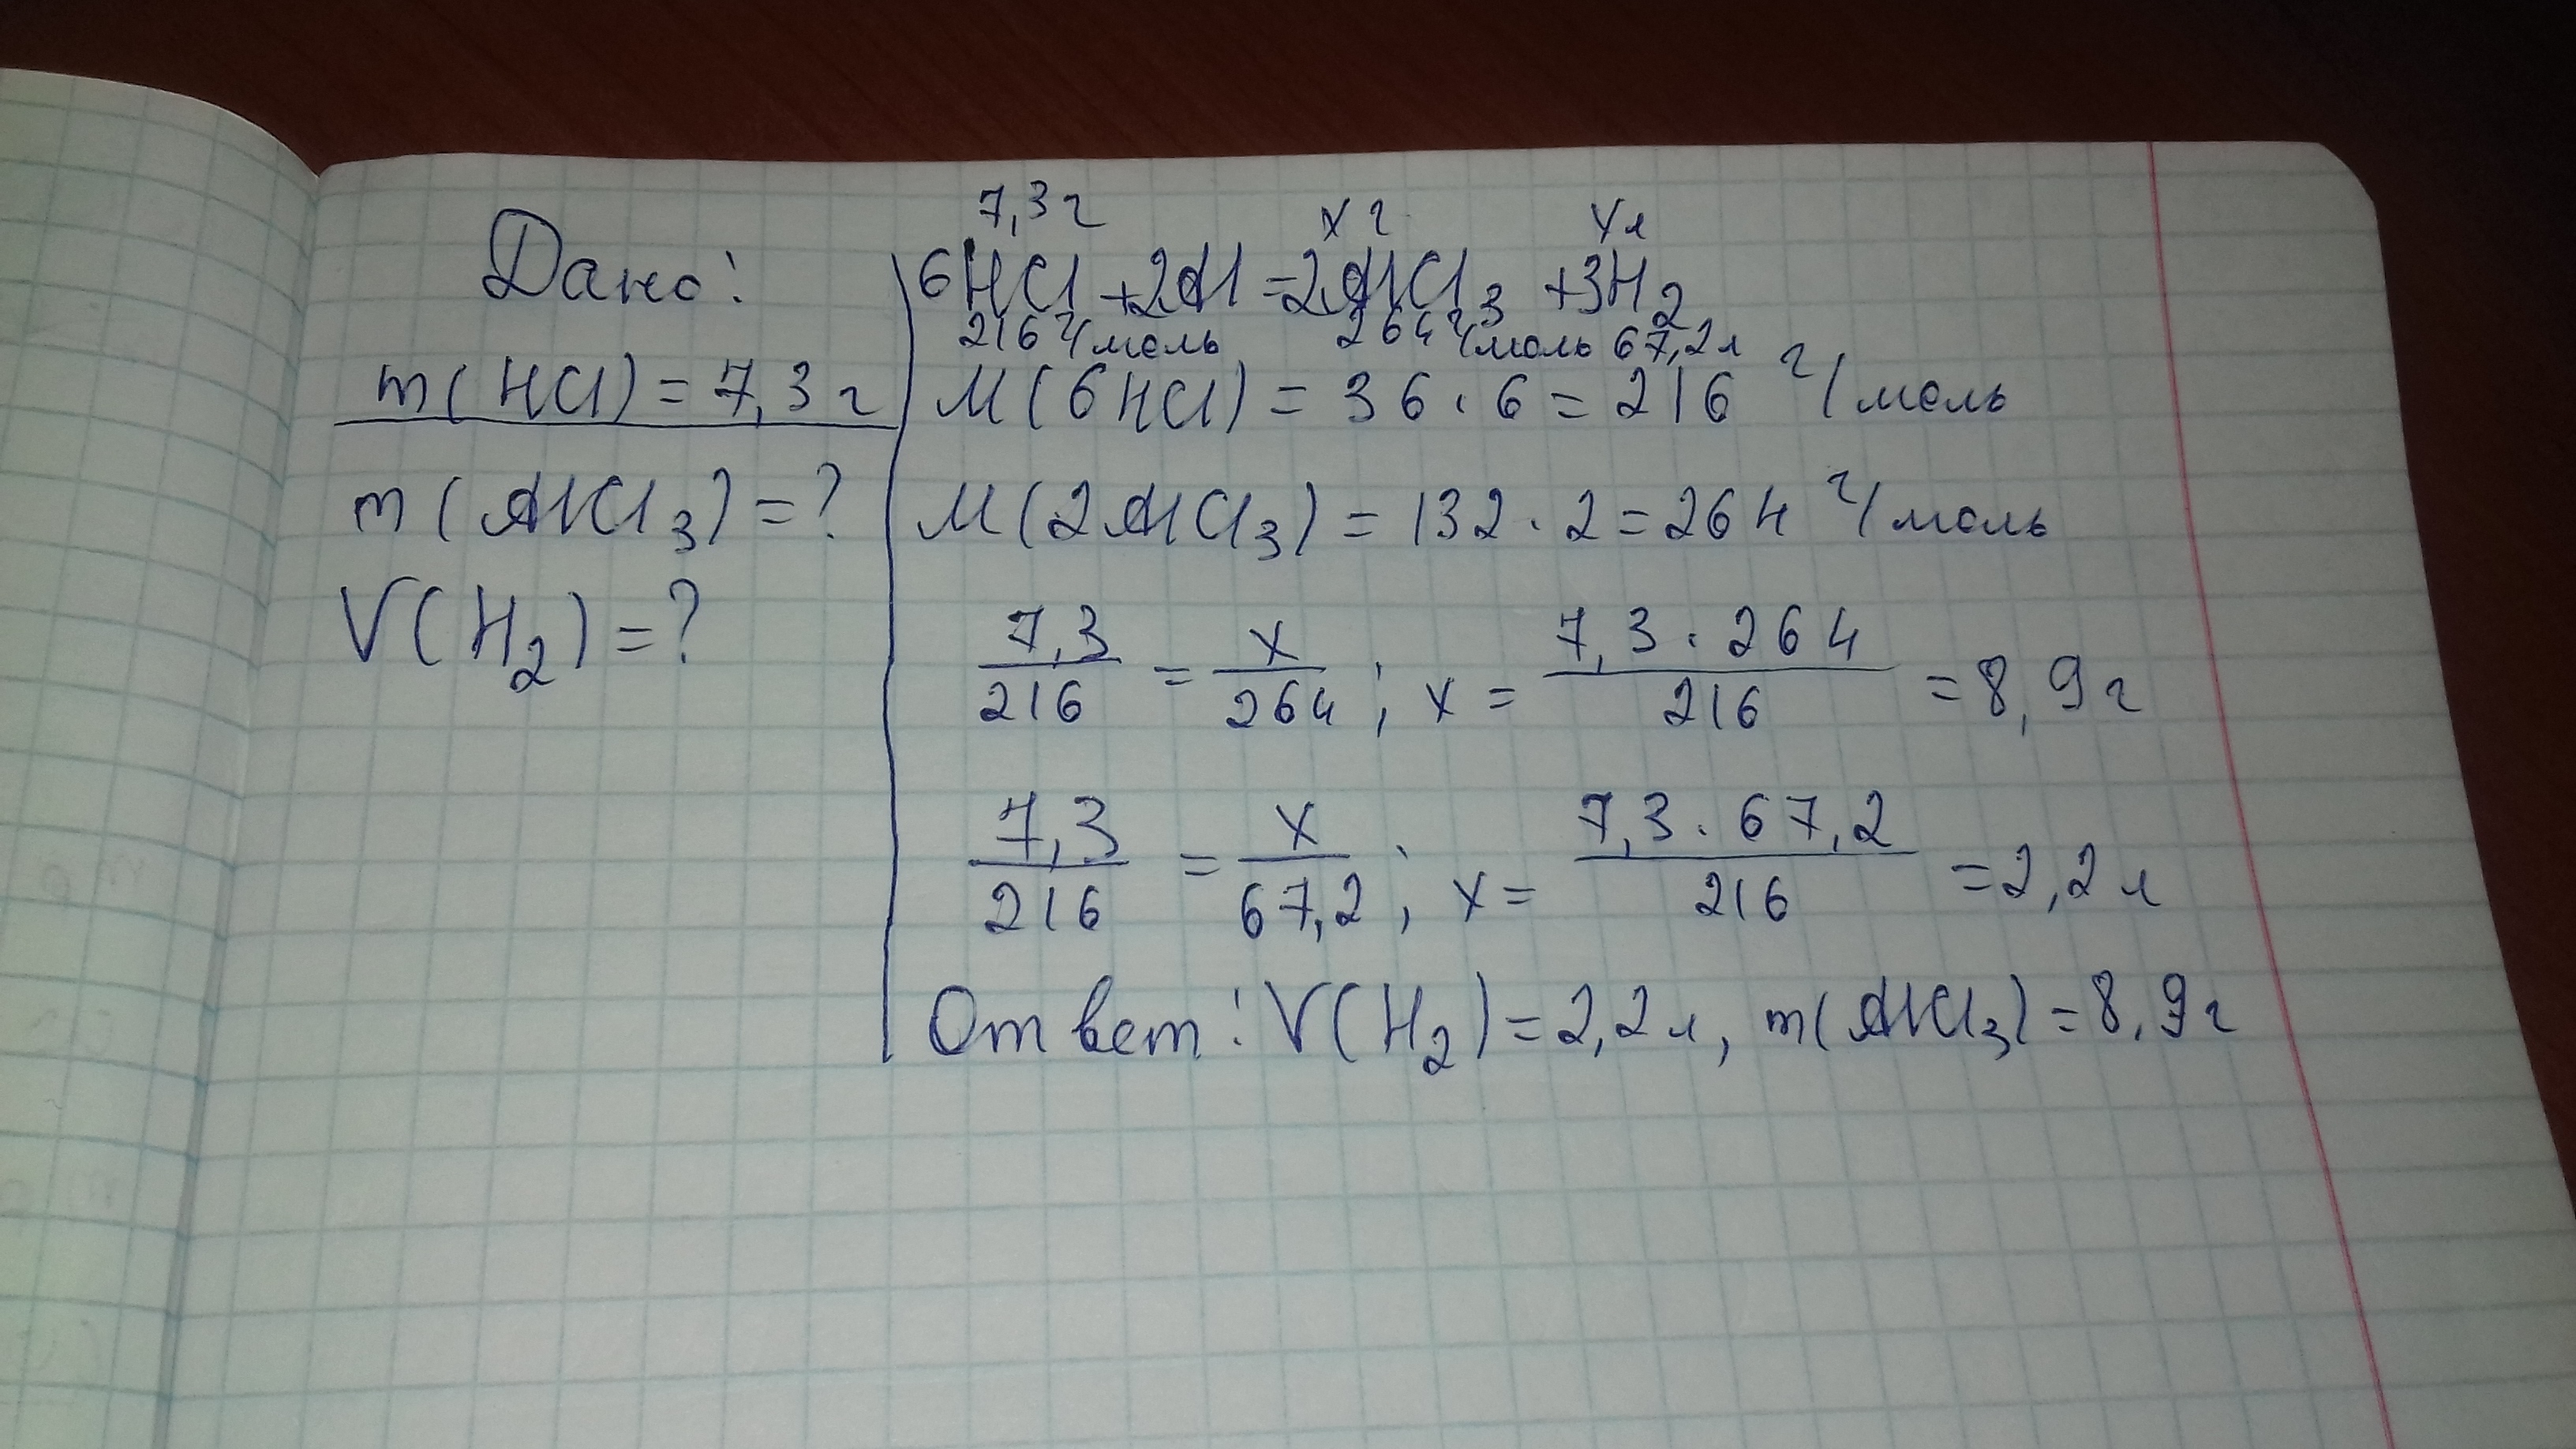 Дано:
m(HCl) = 7,3 г
m(AlCl3) = ?
V(H2) = ?
7,3 г x г x л
6HCl + 2Al = 2AlCl3 + 3H2
216 г/моль 264 г/моль 67,2 л
M(6HCl) = 36 · 6 = 216 г/моль
M(2AlCl3) = 132 · 2 = 264 г/моль
7,3/216 = x/264 ; x = 7,3 · 264/216 = 8,9 г
7,3/216 = x/67,2 ; x = 7,3 · 67,2/216 = 2,2 л
Ответ: V(H2) = 2,2 л, m(AlCl3) = 8,9 г